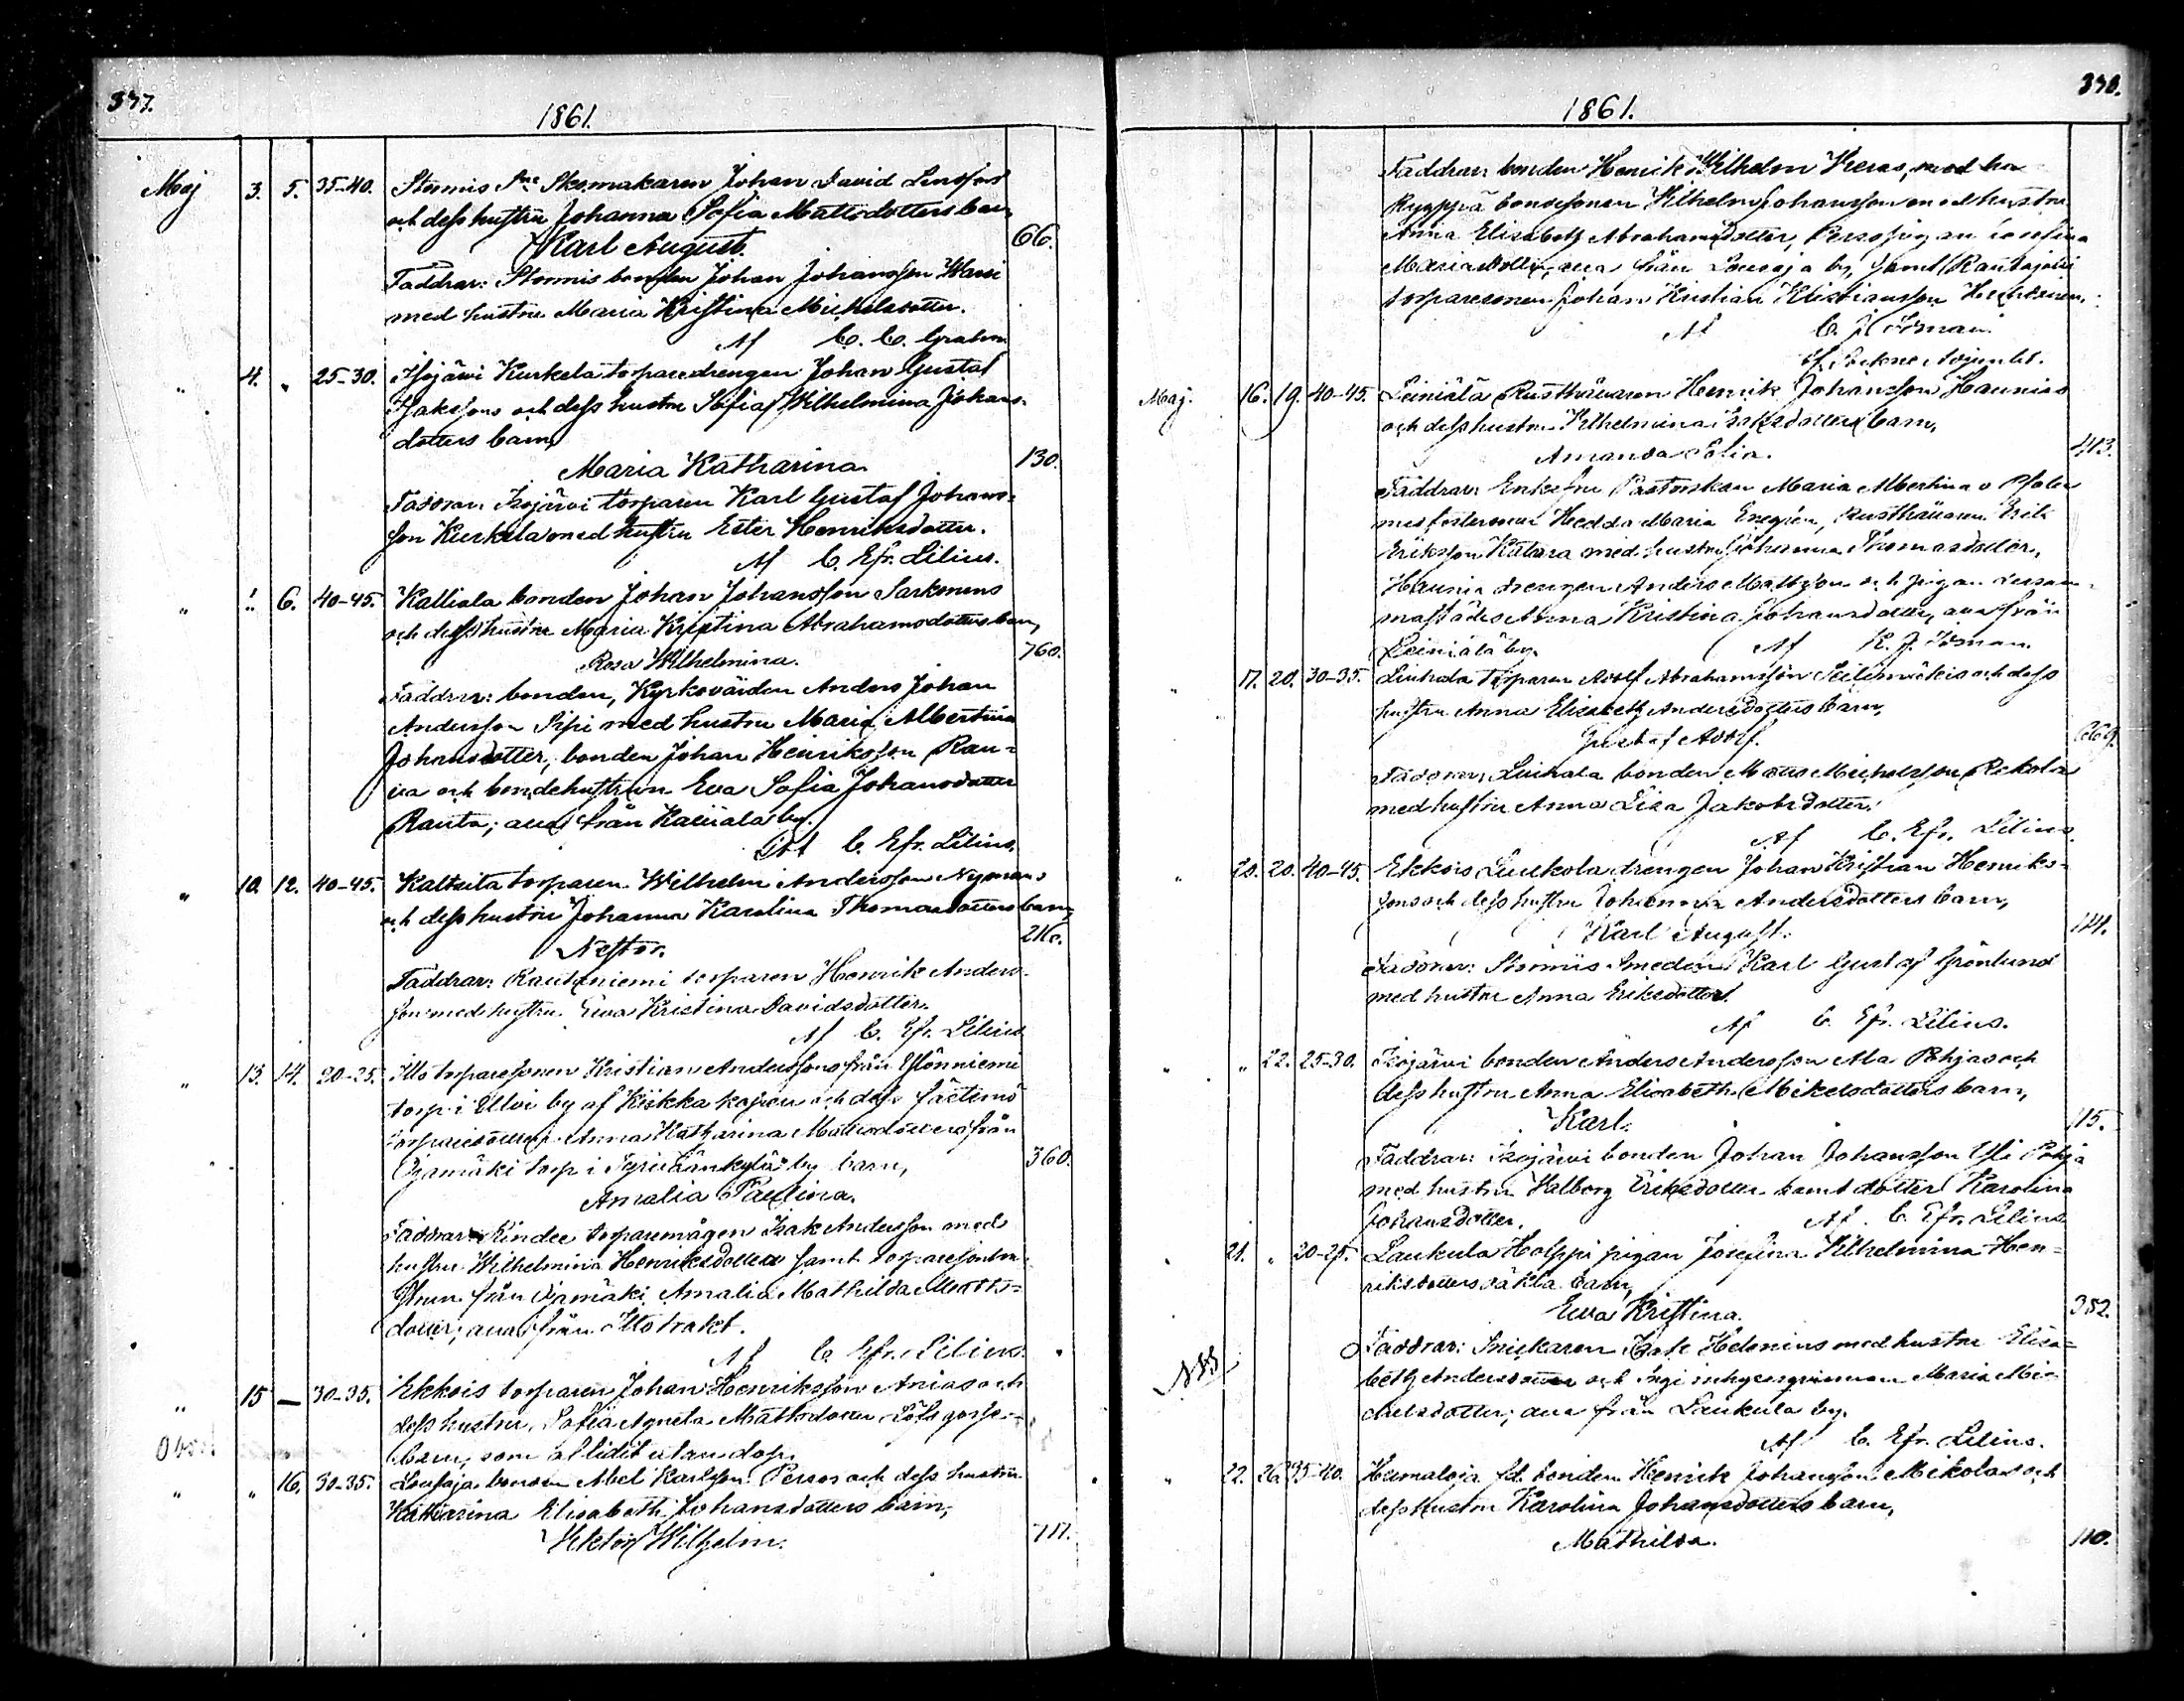 377.
1861.
Maj 3. 5. 35-40. Stormis Skomakaren Johan David
och dess hustru Johanna Sofia Mattsdotters barn,
Karl August. 66.
Faddrar: Stormis bonden Johan Johansson
med hustru Maria Kristina Michelsdotter.
Af C. C. Grahn
" 4. " 25-30. Isojärwi Kurkela torparedrengen Johan Gustaf
Isakssons och dess hustru Sofia Wilhelmina Johans-
dotters barn,
Maria Katharina. 130.
Faddrar: Isojärvi torparen Karl Gustaf Johans-
son Kurkela med hustru Ester Henriksdotter.
Af C. Efr. Lilius.
" " 6. 40-45. Kalliala bonden Johan Johansson Sarkonens
och dess hustru Maria Kristina Abrahamsdotters barn,
Rosa Wilhelmina. 760.
Faddrar: bonden, Kyrkovärden Anders Johan
Andersson Pipi med hustru Maria Albertina
Johansdotter, bonden Johan Henriksson Rau-
via och bondehustrun Eva Sofia Johansdotter
Ranta; alla från by.
Af C. Efr. Lilius.
" 10. 12. 40-45. Kaltsila torparen Wilhelm Andersson Nymans
och dess hustru Johanna Karolina Thomasdotters barn,
Nestor. 216.
Faddrar: Rautaniemi torparen Henrik Anders-
son med hustru Eva Kristina Davidsdotter.
Af C. Efr. Lilius
" 13. 14. 20-25. Illo torparesonen Kristian Anderssons från
torp i Illoi by af Kiikka kapell och dess fästemö
torparedottren Anna Katharina Mattsdotters från
Ojamäki torp i by barn, 360.
Amalia Paulina.
Faddrar: torparemågen Isak Andersson med
hustru Wilhelmina Henriksdotter samt torparesonhu-
strun från Ojamäki Amalia Mathilda Matts-
dotter; alla från Illo trakt.
Af C. Efr. Lilius.
" 15 — 30-35. Ekkois torparen Johan Henriksson Anias och
dess hustru Sofia Agneta Mattsdotters gosse-
barn, som aflidit utan dop.
" " 16. 30-35. Lousaja bonden Abel Karlsson Persos och dess hustru
Katharina Elisabeth Johansdotters barn,
Viktor Wilhelm. 717.
378.
1861.
Faddrar: bonden Henrik Wilhelm Keras, med hu
bondesonen Wilhelm Johansson med hustru
Anna Elisabeth Abrahamsdotter, Perso pigan Josefina
Maria alla från Lousaja by, samt Rautajoki
torparesonen Johan Kristian Kristiansson
Af C. J. Isman.
Maj. 16. 19. 40-45. Leiniälä Rusthållaren Henrik Johansson Haunias
och dess hustru Wilhelmina Isaksdotters barn,
Amanda Sofia. 413.
Faddrar: Enkefru Pastorskan Maria Albertina v Pfaler
med fosterson Hedda Maria Enegrén, rusthållaren Erik
Eriksson Kätara med hustru Johanna Thomasdotter,
Haunia drengen Anders Mattsson och pigan dersam-
mastädes Anna Kristina Johansdotter, alla från
Leiniälä by. Af K. J. Isman.
" 17. 20. 30-35. Liuhala torparen Adolf Abrahamsson och dess
hustru Anna Elisabeth Andersdotters barn,
Gustaf Adolf. 669.
Faddrar: Liuhala bonden Matts Michelsson Rekola
med hustru Anna Lisa Jakobsdotter.
Af C. Efr. Lilius.
" 20. 20. 40-45. Ekkois Luukola drengen Johan Kristian Henriks-
sons och dess hustru Johanna Andersdotters barn,
Karl August. 141.
Faddrar: Stormis Smeden Karl Gustaf Grönlund
med hustru Anna Eriksdotter.
Af C. Efr. Lilius.
" " 22. 25-30. Isojärwi bonden Anders Andersson Ala Pohjas och
dess hustru Anna Elisabeth Mikelsdotters barn,
Karl. 115.
Faddrar: Isojärwi bonden Johan Johansson Yli Pohja
med hustru Walborg Eriksdotter samt dotter Karolina
Johansdotter. Af C. Efr. Lilius
" 21. " 20-25. Laukula Holppi pigan Josefina Wilhelmina Hen-
riksdotters oäkta barn,
Ewa Kristina. 352.
Faddrar: Snickaren Isak Helenius med hustru Elisa-
beth Andersdotter och inhysesqvinnan Maria Mi-
chelsdotter; alla från Laukula by.
Af C. Efr. Lilius.
" 22. 26. 35-40. Humaloja fd. bonden Henrik Johansson Mikolas och
dess hustru Karolina Johansdotters barn,
Mathilda. 110.